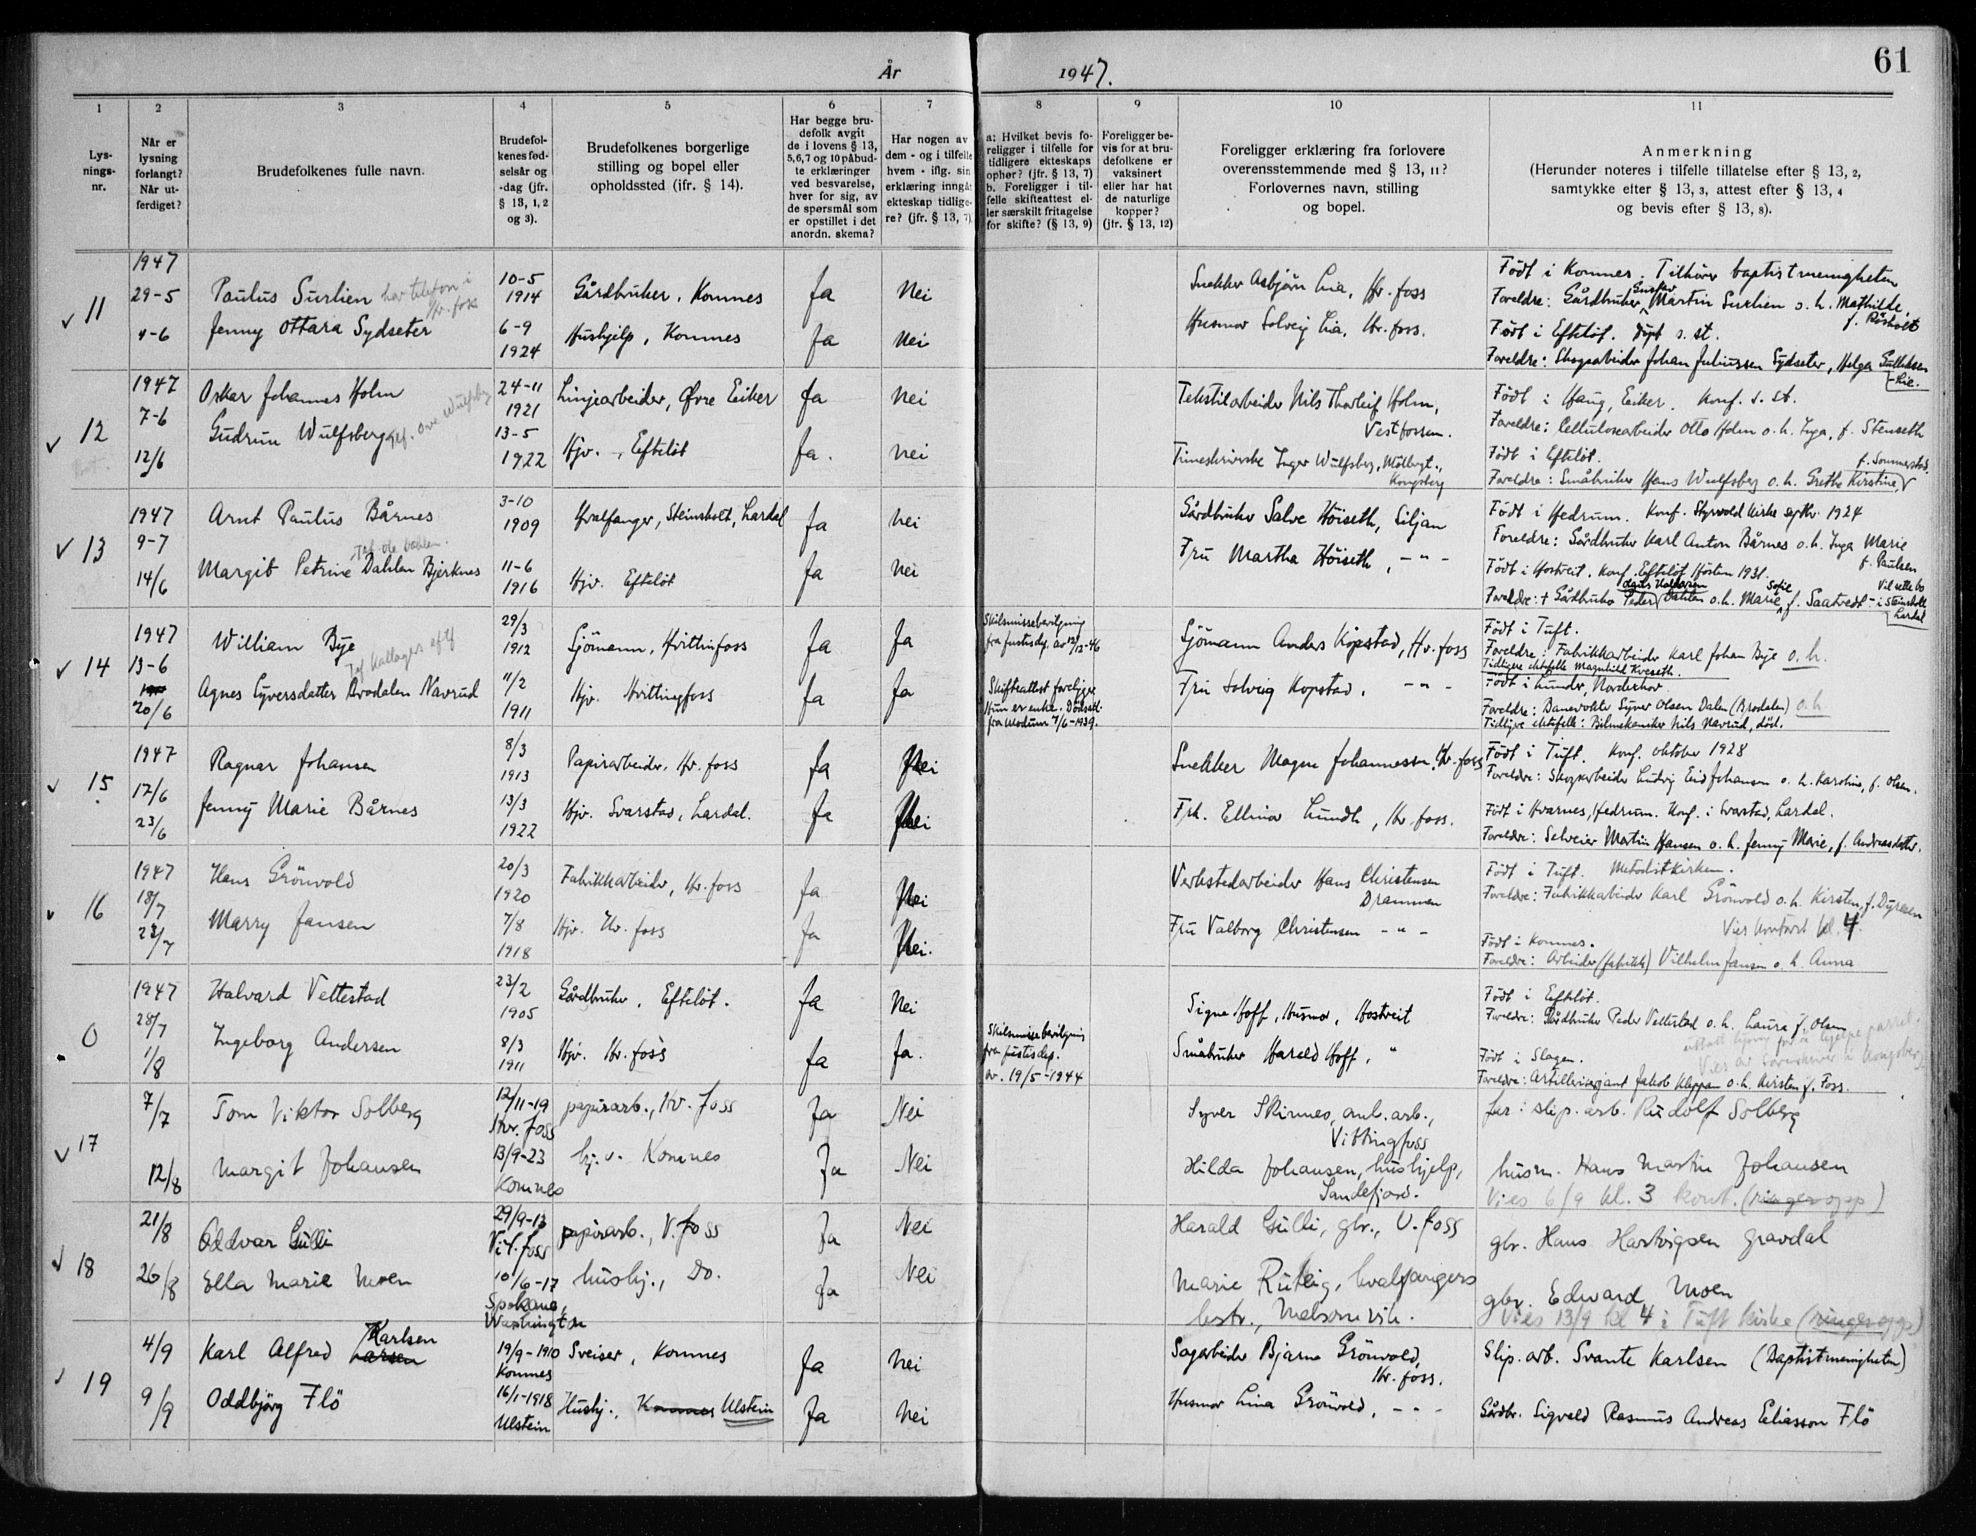 61
År 1947.
1 2 3 4 5 6 7 8 9 10 11
Lys-
nings-
nr.
Når er
lysning
forlangt?
Når ut-
ferdiget?
Brudefolkenes fulle navn.
Brudefol-
kenes fød-
selsår og
-dag (jfr.
§ 13, 1, 2
og 3).
Brudefolkenes borgerlige
stilling og bopel eller
opholdssted (jfr. § 14).
Har begge bru-
defolk avgit
de i lovens § 13,
5,6,7 og 10 påbud-
te erklæringer
ved besvarelse,
hver for sig, av
de spørsmål som
er opstillet i det
anordn. skema?
Har nogen av
dem - og i tilfelle
hvem - iflg. sin
erklæring inngåt
ekteskap tidlige-
re? (jfr. § 13, 7)
a: Hvilket bevis fo-
religger i tilfelle for
tidligere ekteskaps
ophør? (jfr. § 13, 7)
b. Foreligger i til-
felle skifteattest el-
ler særskilt fritagelse
for skifte? (§ 13, 9)
Foreligger be-
vis for at bru-
defolkene er
vaksinert
eller har hat
de naturlige
kopper?
(jfr. § 13, 12)
Foreligger erklæring fra forlovere
overensstemmende med § 13, 11?
Forlovernes navn, stilling
og bopel.
Anmerkning
(Herunder noteres i tilfelle tillatelse efter § 13, 2,
samtykke efter § 13, 3, attest efter § 13, 4
og bevis efter § 13, 8).
11
1947
29-5
4-6
Paulus Surlien har telefon i
Hv. foss
Jenny Ottara Sydseter
10-5
1914
6-9
1924
Gårdbruker, Komnes
Hushjelp, Komnes
Ja
Ja
Nei
Nei
Snekker Asbjørn Lia, Hv. foss
Husmor Solveig Lia, Hv. foss.
Født i Komnes. Tilhører baptistmenigheten
Foreldre: Gårdbruker Gustav Martin Surlien o. h. Mathilde,
f. Røsholt
Født i Efteløt. Døpt s. st.
Foreldre: Skogsarbeider Johan Juliussen Sydseter, Helga Gulliksen
Lie.
12
1947
7-6
12/6
Oskar Johannes Holm
Gudrun Wulfsberg Tlf. Ove Wulfsberg
24-11
1921
13-5
1922
Linjearbeider, Øvre Eiker
Hjv. -, Efteløt
Ja
Ja.
Nei
Nei
Tekstilarbeider Nils Thorleif Holm,
Vestfossen.
Inger Wulfsberg,
Kongsberg
Født i Haug, Eiker. Konf. s. st.
Foreldre: Cellulosearbeider Otto Holm o. h. Inga, f. Stenseth
Født i Efteløt.
f. Sommerstad
Foreldre: Småbruker Hans Wulfsberg o. h. Grethe Kirstine,
13
1947
9-7
14/6
Arnt Paulus Bårnes
Tlf. Ole Dahlen.
Margit Petrine Dahlen Bjerknes
3-10
1909
11-6
1916
Hvalfanger, Steinsholt, Lardal
Hjv. Efteløt
Ja
Ja
Nei
Nei
Gårdbruker Salve Høiseth, Siljan
Fru Martha Høiseth, - " -
Født i Hedrum. Konf. Styrvold kirke septbr. 1924
Foreldre: Gårdbruker Karl Anton Bårnes o. h. Inga Marie
f. Paulsen
Født i Hostveit. Konf. Efteløt Høsten 1931.
Foreldre: + Gårdbruker Peder Dahlen o. h. Marie Sofie, f. Saatvedt - Vil sette bo
i Steinsholt
Lardal
14
1947
13-6
20/6
William Bye
Agnes Syversdatter Brodalen Navrud
29/3
1912
11/2
1911
Sjømann, Hvittinfoss
Hjv. Hvittingfoss
Ja
Ja
Ja
Ja
Skilsmissebevilgning
fra Justisdep. av 12/12-46
Skifteattest foreligger
Hun er enke. Dødsatt.
fra Modum 7/6-1939.
Sjømann Anders Kopstad, Hv. foss
Fru Solveig Kopstad, - " -
Født i Tuft.
Foreldre: Fabrikkarbeider Karl Johan Bye o. h.
Tidligere ektefelle Magnhild Kveseth.
Født i Lunder, Norderhov
Foreldre: Banevokter Syver Olsen Dalen (Brodalen) o. h.
Tidligere ektefelle: Bilmekaniker Nils Navrud, død.
15
1947
17/6
23/6
Ragnar Johansen
Jenny Marie Bårnes
8/3
1913
13/3
1922
Papirarbeider. Hv. foss
Hjv. Svarstad, Lardal.
Ja
Ja
Nei
Nei
Snekker Magne Johannessen, Hv. foss
Frk. Ellinor Lundh, Hv. foss.
Født i Tuft. Konf. oktober 1928
Foreldre: Skogsarbeider Ludvig Eid Johansen o. h. Karoline, f. Olsen.
Født i Hvarnes, Hedrum. Konf. i Svarstad, Lardal.
Foreldre: Selveier Martin Hansen o. h. Jenny Marie, f. Andreasdatter.
16
1947
18/7
28/7
Hans Grönvold
Marry Jansen
20/3
1920
7/8
1918
Fabrikkarbeider, Hv. foss
Hjv. Hv. foss
Ja
Ja
Nei
Nei.
Verkstedarbeider Hans Christensen
Drammen
Fru Valborg Christensen - " -
Født i Tuft. Metodistkirken.
Foreldre: Fabrikkarbeider Karl Grönvold o. h. Kirsten, f. Dyresen
Vies kl. 4.
Født i Komnes.
Foreldre: Arbeider (fabrikk) Vilhelm Jansen o. h. Anna
0
1947
28/7
1/8
Halvard Vettestad
Ingeborg Andersen
23/2
1905
8/3
1911
Gårdbruker, Efteløt.
Hjv. Hv. foss
Ja
Ja
Nei
Ja.
Skilsmissebevilgning
fra Justisdep.
av. 19/5-1944
Signe Hoff, Husmor, Hostveit
Småbruker Harald Hoff, "
Født i Efteløt.
Foreldre: Gårdbruker Peder Vettestad o. h. Laura f. Olsen
Vies av Sorenskriver i Kongsberg
Født i Slagen.
Foreldre: Jakob Kleppan o. h. Kirsten f. Foss.
17
7/7
12/8
Tom Viktor Solberg
Margit Johansen
12/11-19
Hv. foss
13/9-23
Komnes
papirarb., Hv. foss
hj. v. Komnes
Ja
Ja
Nei
Nei
Syver Skinnes, anl. arb.,
Vittingfoss
Hilda Johansen, hushjelp,
Sandefjord.
far: slip. arb. Rudolf Solberg
husm. Hans Martin Johansen
Vies 6/9 kl. 3 kont. (ringer opp)
18
21/8
26/8
Oddvar Gulli
Ella Marie Moen
29/9-13
Vit. foss
10/6-17
Spokane,
Washington
papirarb., V. foss
hushj., Do.
Ja
Ja
Nei
Nei
Harald Gulli, gbr., V. foss
Marie Rutlig, hvalfangers
hstr., Melsomvik.
gbr. Hans Hartvigsen Gravdal
gbr. Edward Moen
Vies 13/9 kl 4 i Tuft kirke (ringer opp)
19
4/9
9/9
Karl Alfred Larsen Karlsen
Oddbjørg Flö
19/9-1910
Komnes
16/1-1918
Ulstein
Sveiser, Komnes
Hushj., Komnes Ulstein
Ja
Ja
Nei
Nei
Sagarbeider Bjarne Grönvold,
Hv. foss.
Husmor Lina Grönvold, - " -
Slip. arb. Svante Karlsen (Baptistmenigheten)
Gårdbr. Sigvald Rasmus Andreas Eliassen Flö